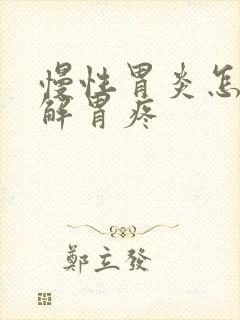 慢性胃炎怎
解胃疼
鄭立發